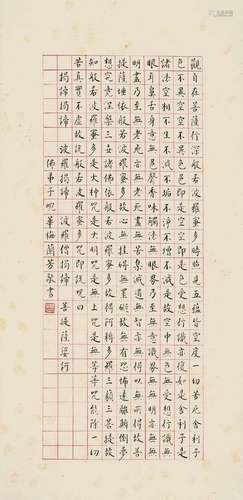 觀自在菩薩行深般若波羅蜜多時照見五蘊皆空度一切苦厄舍利子
色不異空空不異色色即是空空即是色受想行識亦復如是舍利子是
諸法空相不生不滅不垢不淨不增不減是故空中無色無受想行識無
眼耳鼻舌身意無色聲香味觸法無眼界乃至無意識界無無明亦無無
明盡乃至無老死亦無老死盡無苦集滅道無智亦無得以無所得故菩
提薩埵依般若波羅蜜多故心無挂礙無罣礙故無有恐怖遠離顛倒夢
想究竟涅槃三世諸佛依般若波羅蜜多故得阿耨多羅三藐三菩提故
知般若波羅蜜多是大神咒是大明咒是無上咒是無等等咒能除一切
苦真實不虛故說般若波羅蜜多咒即說咒曰
揭諦揭諦 波羅揭諦 波羅僧揭諦 菩提薩婆訶
佛弟子畹華梅蘭芳敬書